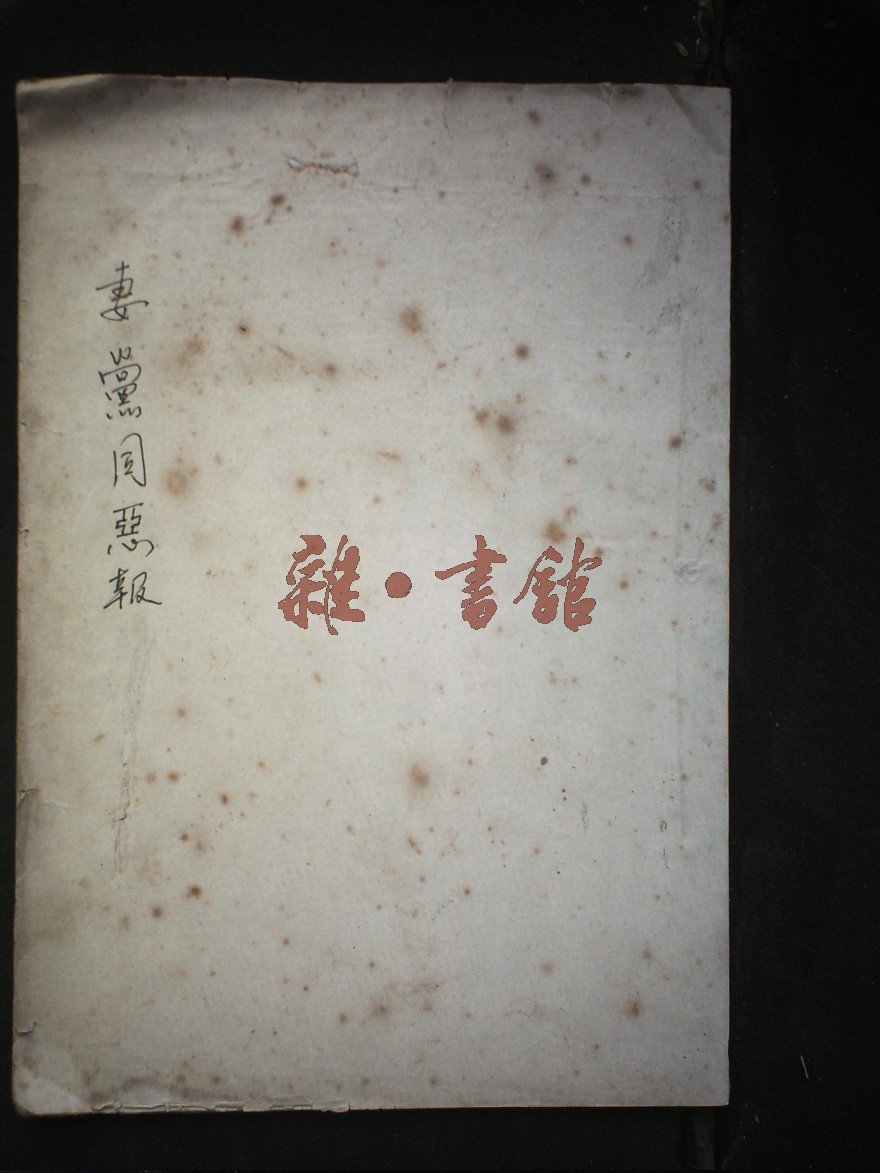 妻黨同惡報
雜·書館